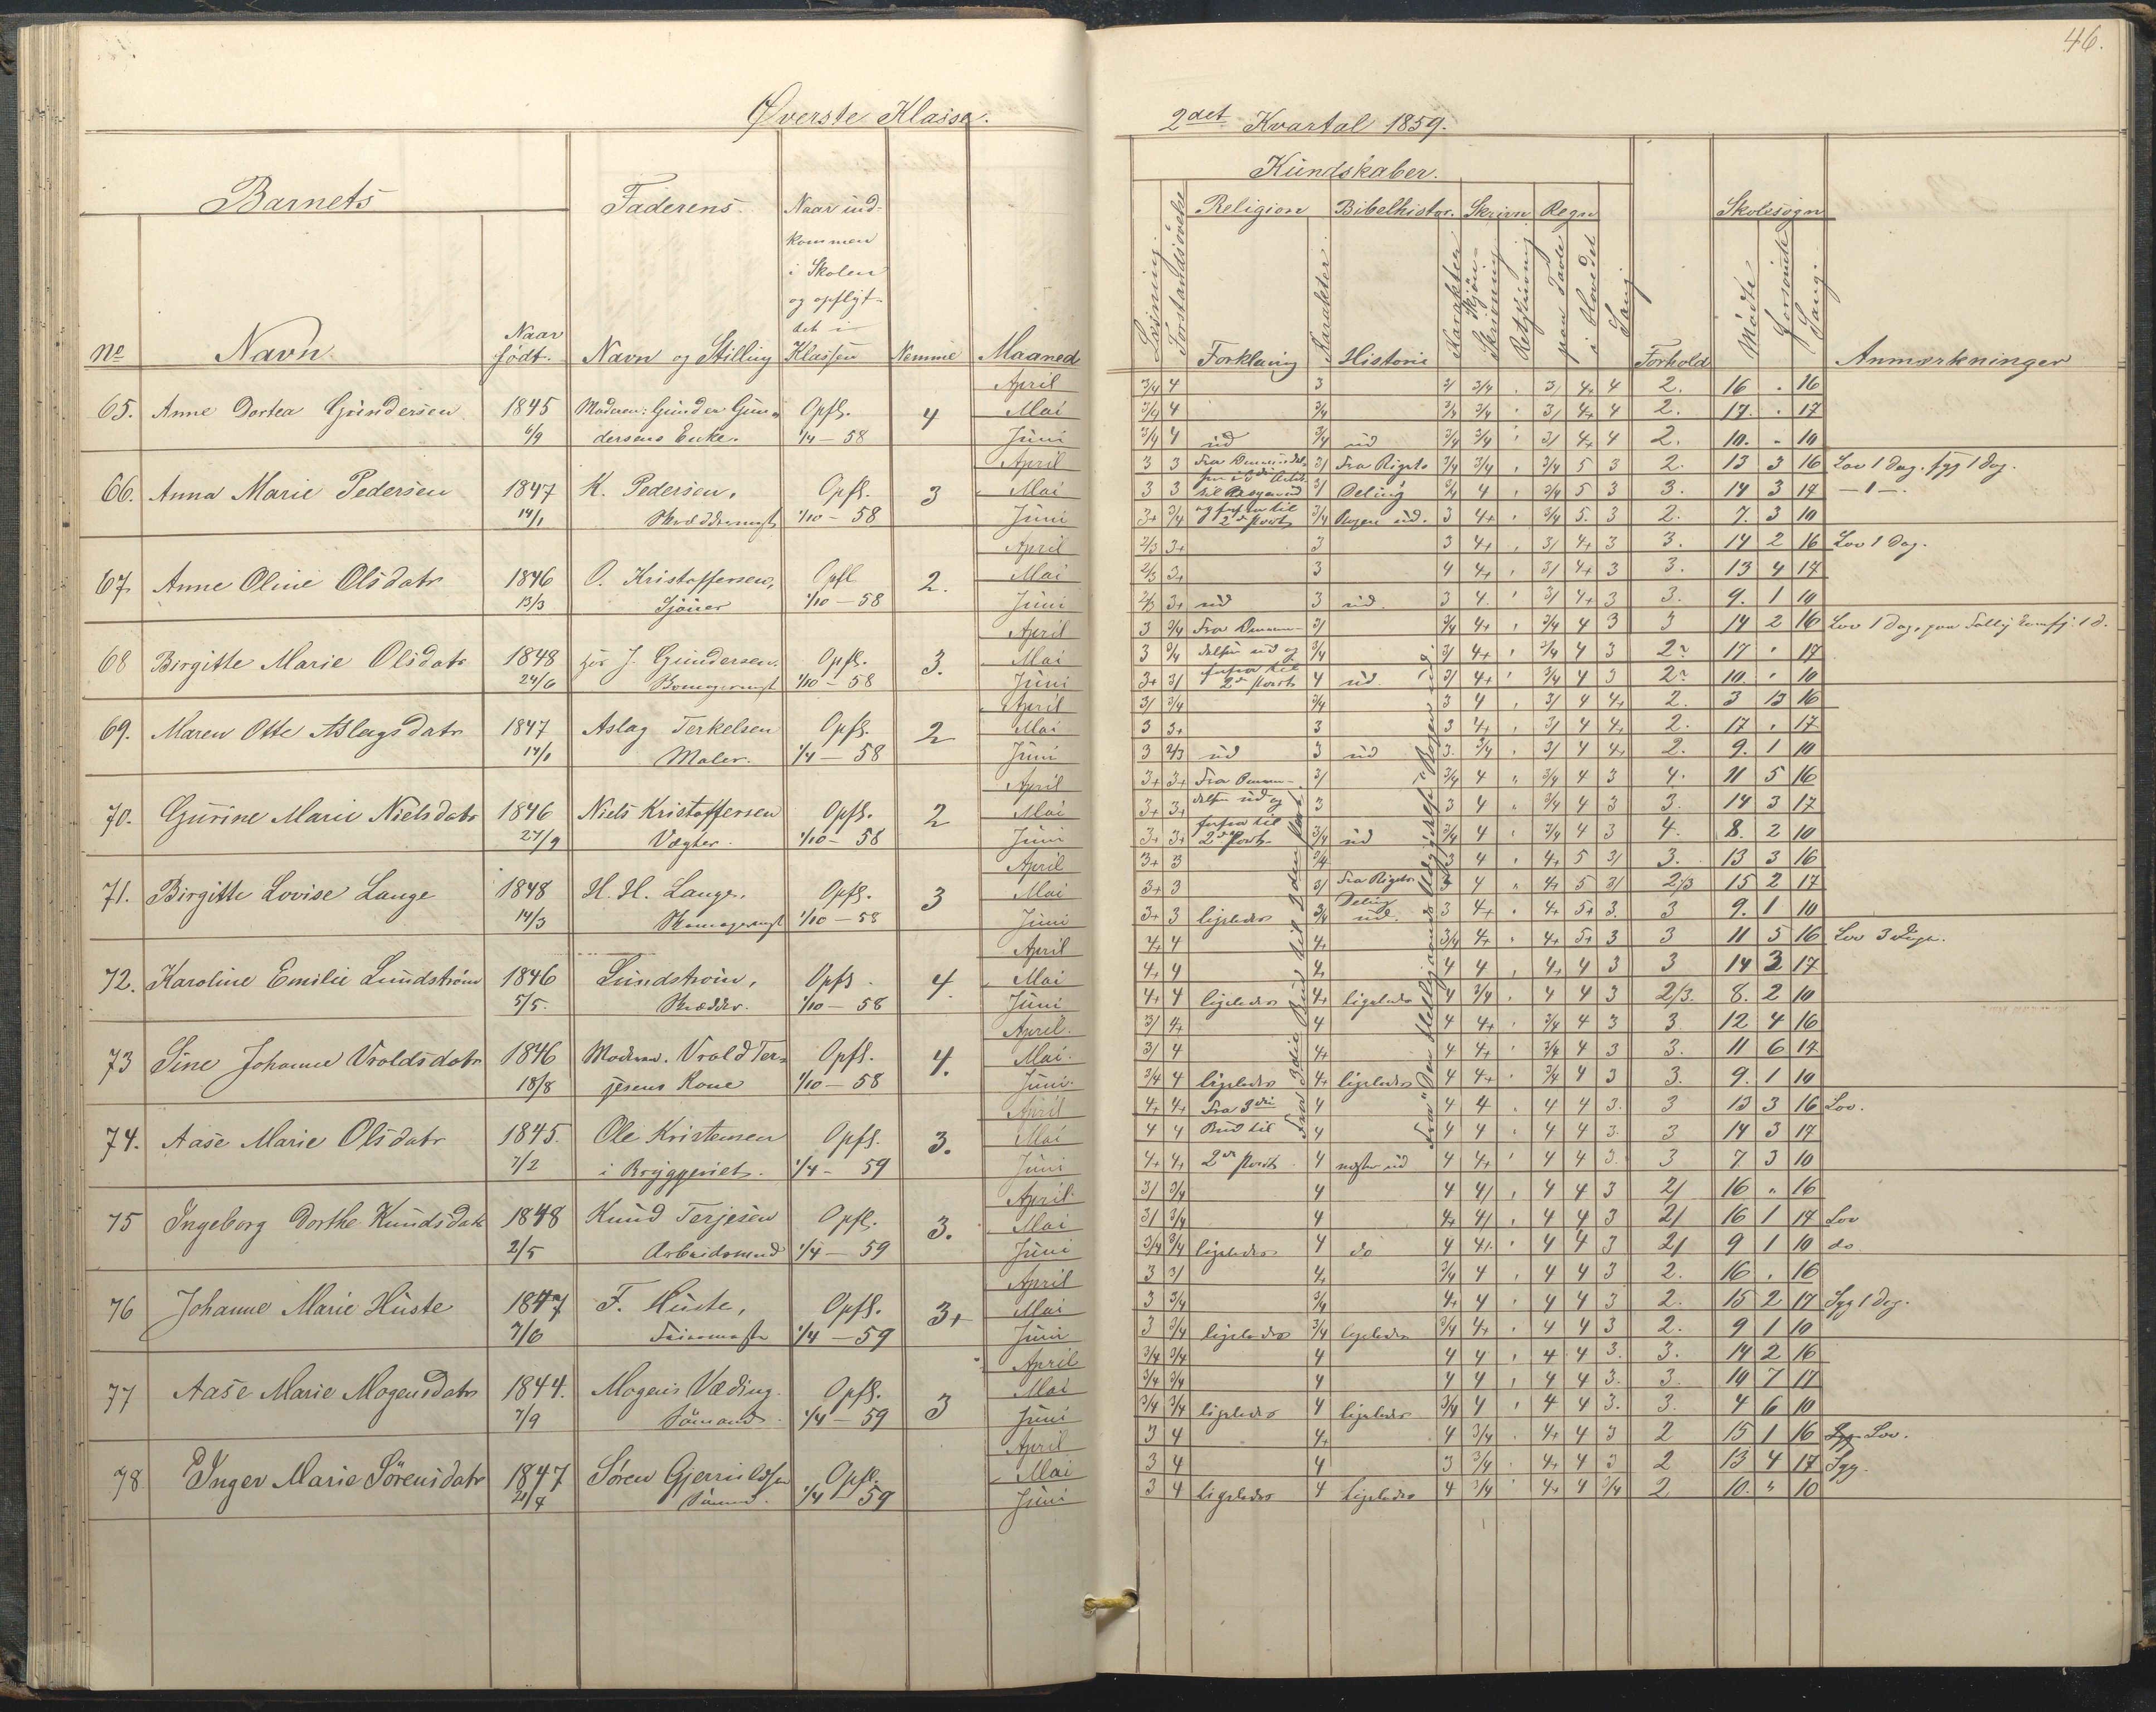 46.
Øverste Klasse.
2det Kvartal 1859.
Barnets
Faderens
Naar ind-
kommen
i Skolen
og opflyt-
tet i
Klassen
No
Navn
Naar
født.
Navn og Stilling
Nemme
Maaned
Kundskaber.
Læsning
Forstandsøvelse
Religion
Forklaring
Karakter
Bibelhistor.
Historie
Karakter
Skrivn
Skjøn-
Skrivning
Retskrivning
Regn
paa Tavle
i Hovedet
Sang
Forhold
Skolesøgn
Mødte
Forsømte
Gang.
Anmærkninger
65. Anne Dortea Gundersen 1845 Moderen: Gunder Gun- Opfl. 4
6/9 dersens Enke. 1/4 – 58
April 3/4 4 3 3/ 3/4 3/ 4+ 4 2. 16 . 16
Mai 3/4 4 3/4 3/4 3/4 3/ 4+ 4 2. 17. . 17
Juni 3/4 4 ud 3/4 ud 3/4 3/4 3/ 4+ 4 2. 10. . 10
66. Anna Marie Pedersen 1847 K. Pedersen, Opfl. 3
14/1 1/10 – 58
April 3 3 3/ Fra Rigets 3/4 3/4 3/4 5 3 2. 13 3 16 Lov 1 dag, syg 1 dag.
Mai 3 3 3/ Deling 3/4 4 3/4 5 3 3. 14 3 17 – 1 –.
Juni 3+ 3/4 og forfra til 2d Part 3/4 Bogen ud. 3 4+ 3/4 5. 3 2. 7. 3 10
67. Anne Oline Olsdatr 1846 O. Kristoffersen, Opfl 2.
13/3 Sjøuer 1/10 – 58
April 2/3 3+ 3 3 4+ 3/ 4+ 3 3. 14 2 16 Lov 1 Dag.
Mai 2/3 3+ 3 4 4+ 3/ 4+ 3 3. 13 4 17
Juni 2/3 3+ ud 3 ud. 3 4. 3/ 4+ 3 3. 9. 1 10
68 Birgitte Marie Olsdatr 1848 hos J. Gundersen. Opfl. 3.
24/6 1/10 – 58
April 3 3/4 3/ 3/4 4+ 3/4 4 3 3 14 2 16
Mai 3 3/4 delsen ud og 3/4 3/ 4+ 3/4 4 3 2 17 . 17
Juni 3+ 3/ forfra til 2d Part 4 ud 3/ 4+ 3/4 4 3 2 10. . 10
69. Maren Otte Aslagsdatr 1847 Aslag Terkelsen Opfl. 2
14/1 Maler. 1/4 – 58
April 3/ 3/4 3/4 3 4 3/ 4 4+ 2. 3 13 16
Mai 3 3+ 3 3 4+ 3/ 4 4+ 2. 17 . 17
Juni 3 2/3 ud 3 ud 3. 3/4 3/ 4 4+ 2. 9. 1 10
70. Gurine Marie Nielsdatr 1846 Niels Kristoffersen Opfl. 2
27/9 Vægter. 1/10 – 58
April 3+ 3+ 3/ 3/4 4 3/4 4 3 4. 11 5 16
Mai 3+ 3+ delsen ud og 3 3 4 3/4 4 3 3. 14 3 17
Juni 3+ 3+ forfra til 2den Part. 3/4 ud 3/4 4 3/4 4 3 4. 8. 2 10
71. Birgitte Lovise Lange 1848 H. H. Lange. Opfl. 3
14/3 1/10 – 58
April 3+ 3 3/4 3 4 4+ 5 3/ 3. 13 3 16
Mai 3+ 3 3/ Fra Rigets 3 4 4+ 5 3/ 2/3 15 2 17
Juni 3+ 3 ligeledes 3/4 Deling ud. 3 4+ 4+ 5+ 3. 3 9. 1 10
72. Karoline Emilie Lundstrøm 1846 Lundstrøm, Opfl. 4.
5/5. Skrædder. 1/10 – 58
April 4+ 4 4+ 3/4 4+ 4+ 5+ 3 3 11 5 16 Lov 3 Dage.
Mai 4+ 4 4+ 4 4 4+ 4 3 3 14 3 17
Juni 4+ 4 ligeledes 4+ ligeledes 4 3/4 4 4 3 2/3. 8. 2 10
73 Sine Johanne Vroldsdatr 1846 Moderen. Vrold Ter- Opfl. 4.
18/8 jesens Kone 1/10 – 58
April. 3/ 4+ 4 4 4+ 3/4 4 3 3. 12 4 16
Mai. 3/ 4 4+ 4 4+ 3/4 4 3 3. 11 6 17
Juni. 3/4 4 ligeledes 4+ ligeledes 4 4+ 3/4 4 3 3. 9. 1 10
74. Aase Marie Olsdatr 1845. Ole Kristensen Opfl. 3.
7/2 i Bryggeriet. 1/4 – 59
April 4+ 4+ Fra 3die 4 4 4 4 4 3. 3 13 3 16 Lov.
Mai 4 4 Bud til 4 4 4 4 4 3. 3 14 3 17
Juni 4+ 4+ 2den Part. 4 næsten ud 4 4+ 4 4 3. 3 7 3 10
75 Ingeborg Dorthe Knudsdatr 1848 Knud Terjesen Opfl. 3.
2/5 Arbeidsmand 1/4 – 59
April 3/ 3/4 4 4 4/ 4 4 3 2/ 16 „ 16
Mai 3/ 3/4 4 4+ 4/ 4 4 3 2/ 16 1 17 Lov
Juni 3/4 3/4 ligeledes 4 do 4 4/. 4 4 3 2/ 9 1 10 do
76 Johanne Marie Huste 1847 F. Huste, Opfl. 3+
7/6 1/4 – 59
April 3 3/ 4+ 3/4 4 4 4 3 2. 16 . 16
Mai 3 3/4 3/4 4+ 4 4 4 3 2. 15 2 17 Syg 1 dag.
Juni 3 3/4 ligeledes 3/4 ligeledes 3/4 4+ 4 4 3 2. 9 1 10
77 Aase Marie Mogensdatr 1844. Mogens Væding. Opfl. 3
7/9 Sømand. 1/4 – 59
April 3/4 3/4 4 4 4 4 4 3. 3. 14 2 16
Mai 3/4 3/4 4 4 4 4 4 3. 3. 10 7 17
Juni 3/4 3/4 ligeledes 4 ligeledes 3/4 4 4 4 3. 3. 4 6 10
78. Inger Marie Sørensdatr 1847 Søren Opfl. 3
21/4 Sømand. 1/4 – 59
April 3 4 4+ 4 3/4 4+ 4 3 2 15 1 16 Lov.
Mai 3 4 4 3 3/4 4+ 4 3 2 13 4 17 Syg.
Juni 3 4 ligeledes 4 ligeledes 4 3/4 4+ 4 3/4 2 10. „ 10
Fra 3die Bud til 2den Part.